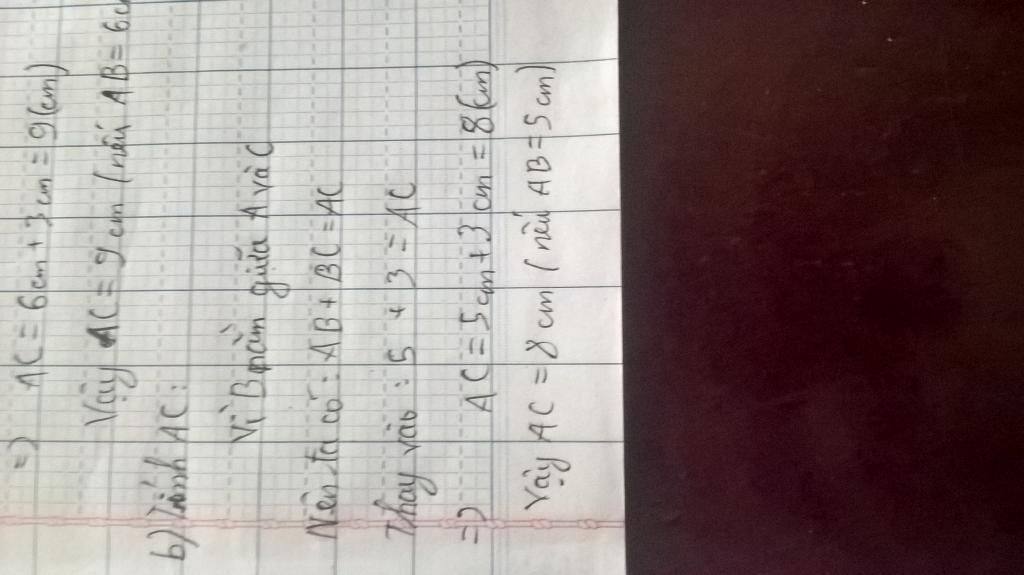 => AC = 6cm + 3cm = 9(cm)
Vậy AC = 9 cm (nếu AB = 6c
b) Tính AC :
Vì B nằm giữa A và C
Nên ta có : AB + BC = AC
Thay vào : 5 + 3 = AC
=> AC = 5cm + 3cm = 8(cm)
Vậy AC = 8 cm (nếu AB = 5 cm)